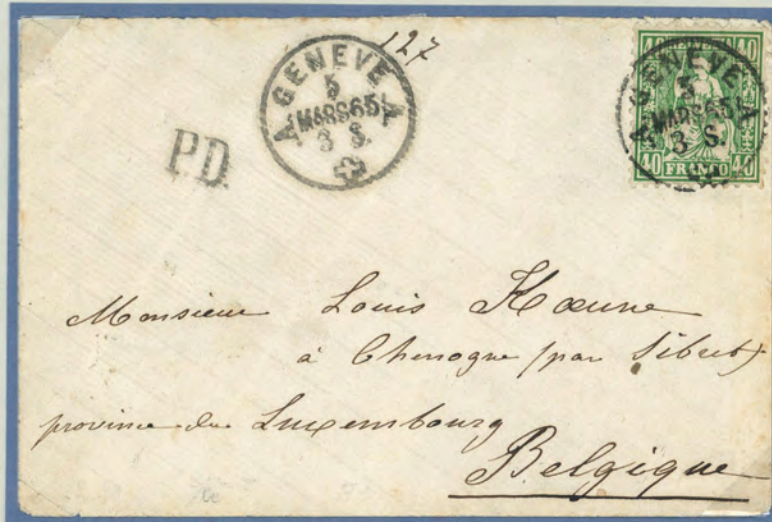 127
GENEVE
5
MARS 65
3 S.
P.D.
40 HELVETIA 40
GENEVE
5
MARS 65
3 S.
40 FRANCO 40
Monsieur Louis Kœune
à Chenogne (par Sibret)
province du Luxembourg
Belgique